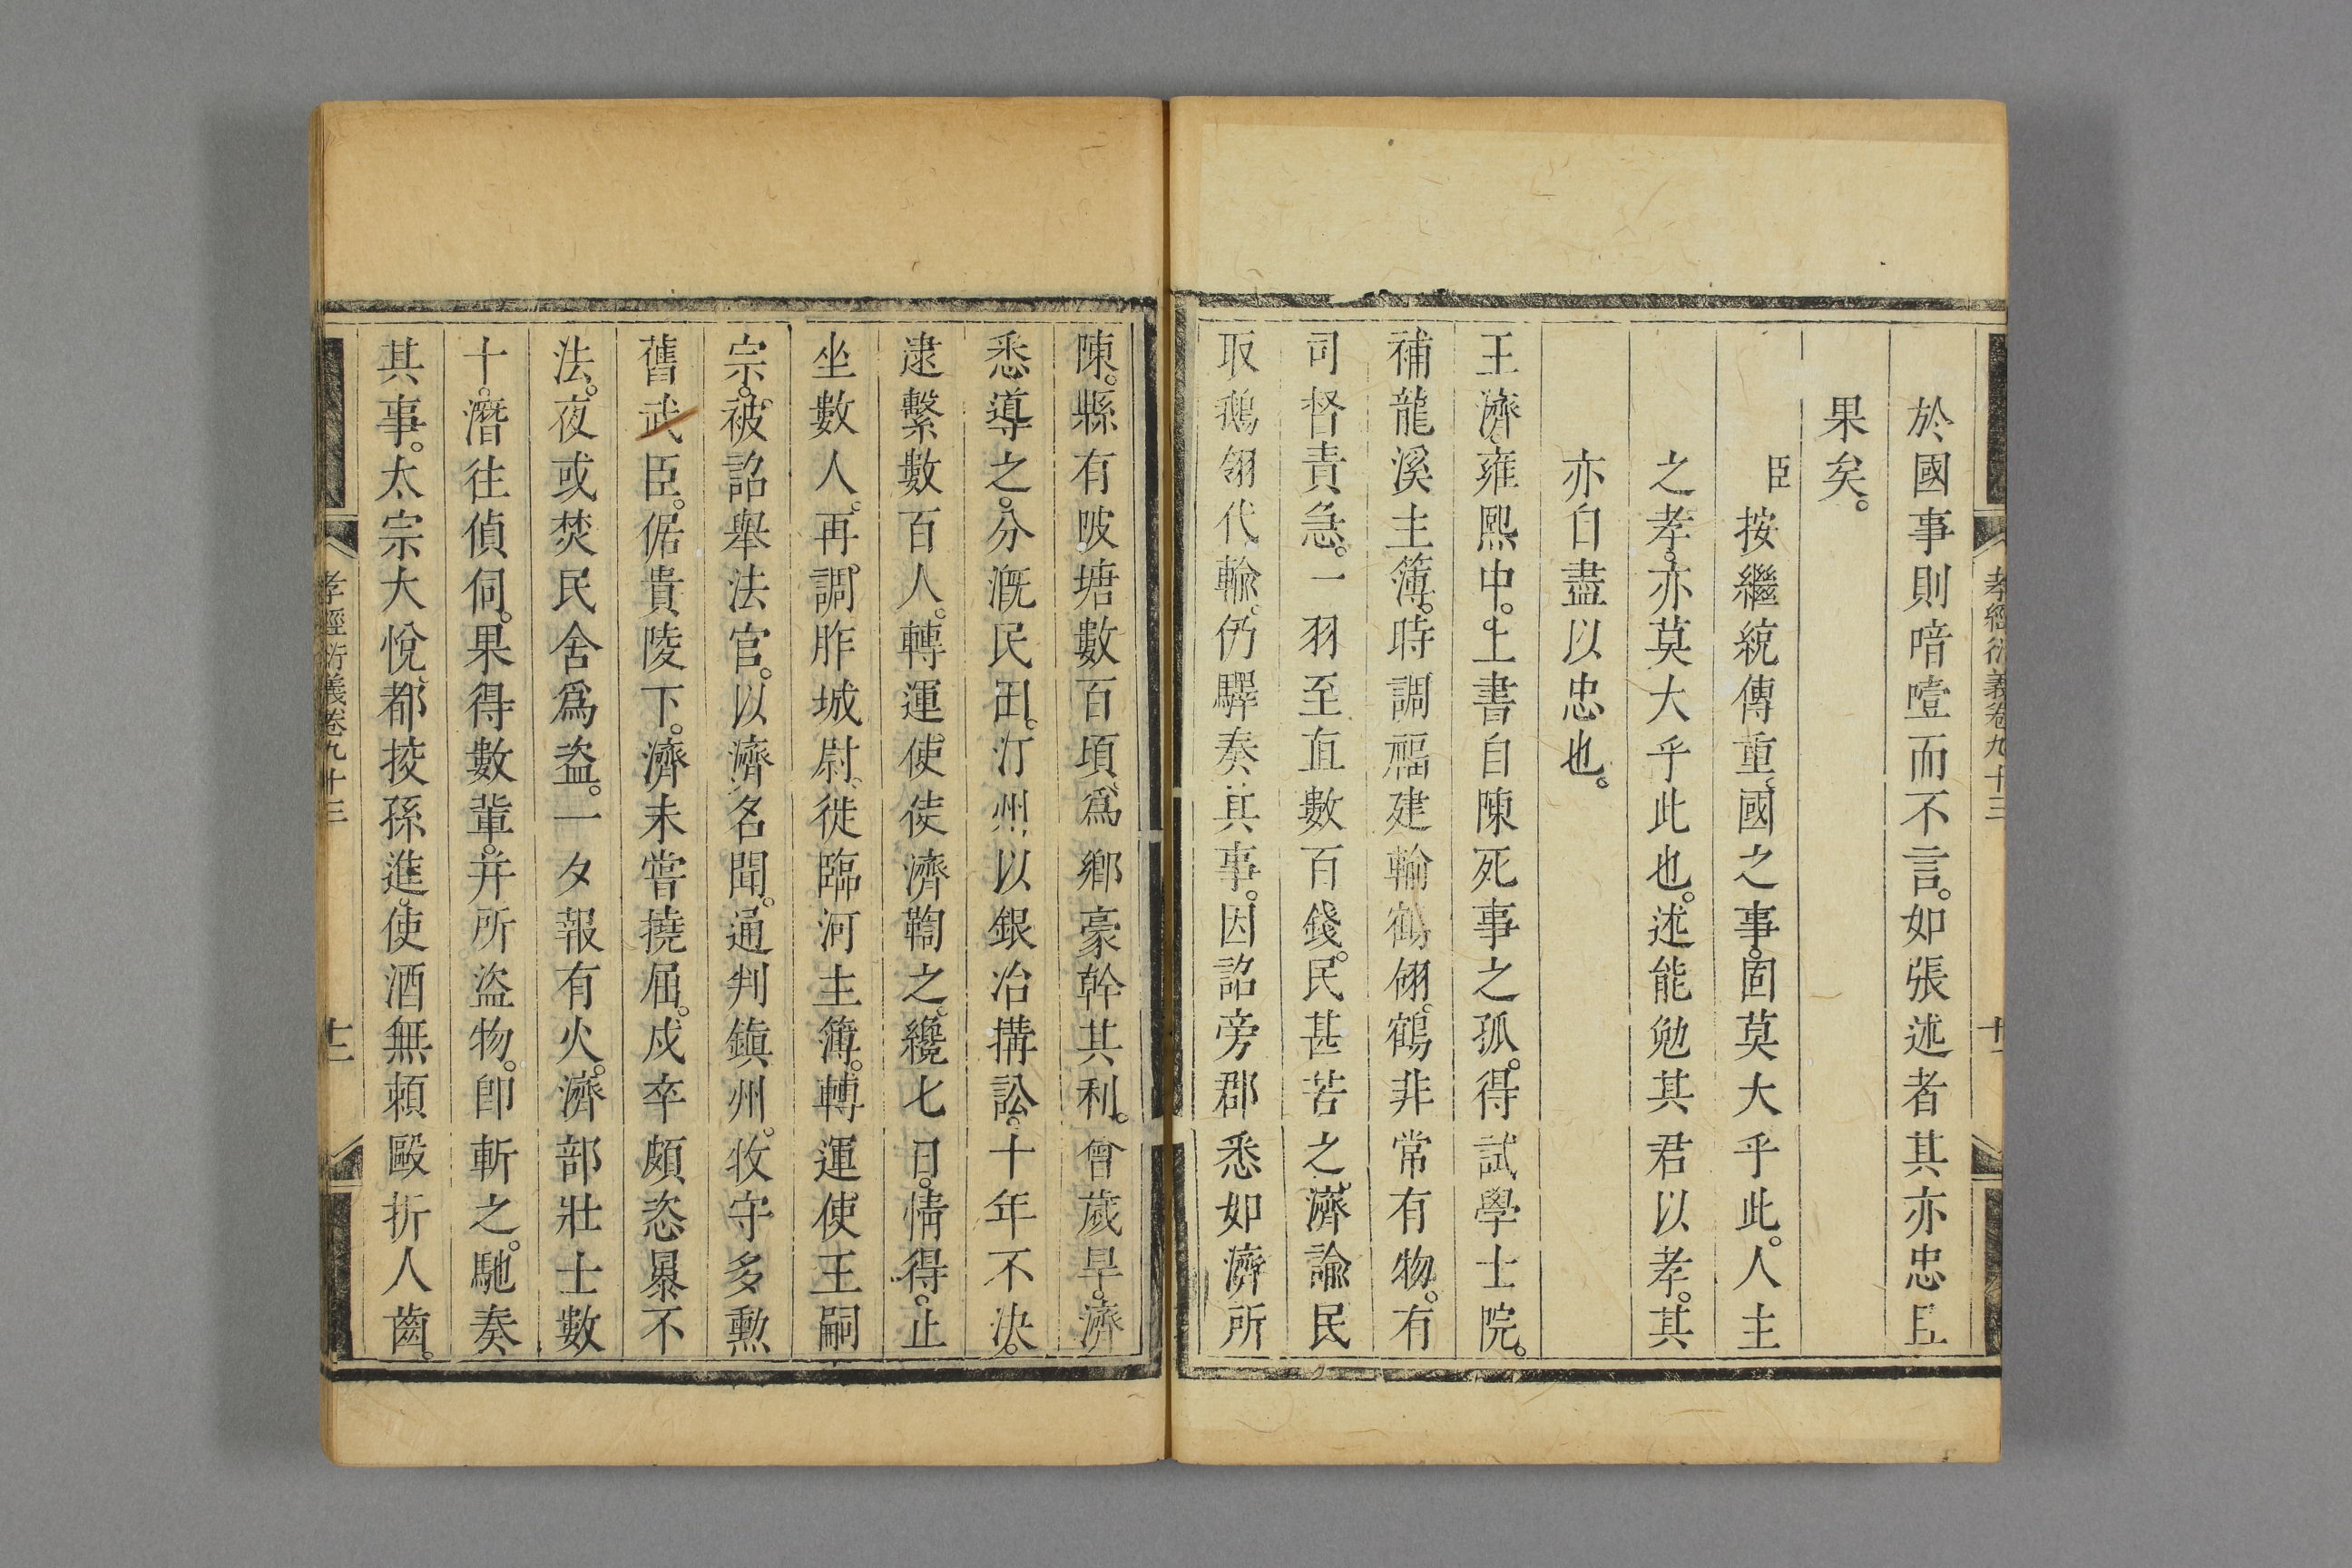 孝經衍義卷九十三
十一
於國事則喑噎而不言。如張述者其亦忠且
果矣。
臣按繼統傳重國之事。固莫大乎此。人主
之孝。亦莫大乎此也。述能勉其君以孝。其
亦自盡以忠也。
王濟。雍熙中。上書自陳死事之孤。得試學士院。
補龍溪主簿。時調福建輸鶴翎。鶴非常有物。有
司督責急。一羽至直數百錢。民甚苦之。濟諭民
取鵝翎代輸。仍驛奏其事。因詔旁郡悉如濟所
陳。縣有陂塘數百頃。爲鄉豪幹其利。會歲旱。濟
悉導之。分溉民田。汀州以銀冶搆訟。十年不決。
逮繫數百人。轉運使使濟鞫之。纔七日。情得。止
坐數人。再調胙城尉。徙臨河主簿。轉運使王嗣
宗。被詔舉法官。以濟名聞。通判鎭州。牧守多勲
舊武臣。倨貴陵下。濟未嘗撓屈。戍卒頗恣暴不
法。夜或焚民舍爲盜。一夕報有火。濟部壯士數
十。潛往偵伺。果得數輩。幷所盜物。卽斬之。馳奏
其事。太宗大悅。都挍孫進。使酒無頼毆折人齒。
孝經衍義卷九十三
十二